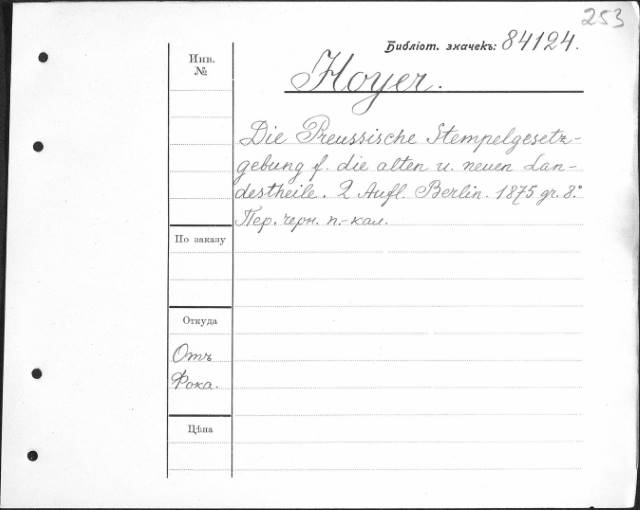 253
Библіот. значекъ: 84124.
Инв.
№
Hoyer.
Die Preussische Stempelgesetz-
gebung f. die alten u. neuen Lan-
destheile. 2 Aufl. Berlin. 1875 gr. 8.°
Пер. черн. п.-кал.
По заказу
Откуда
Отъ
Фока.
Цѣна